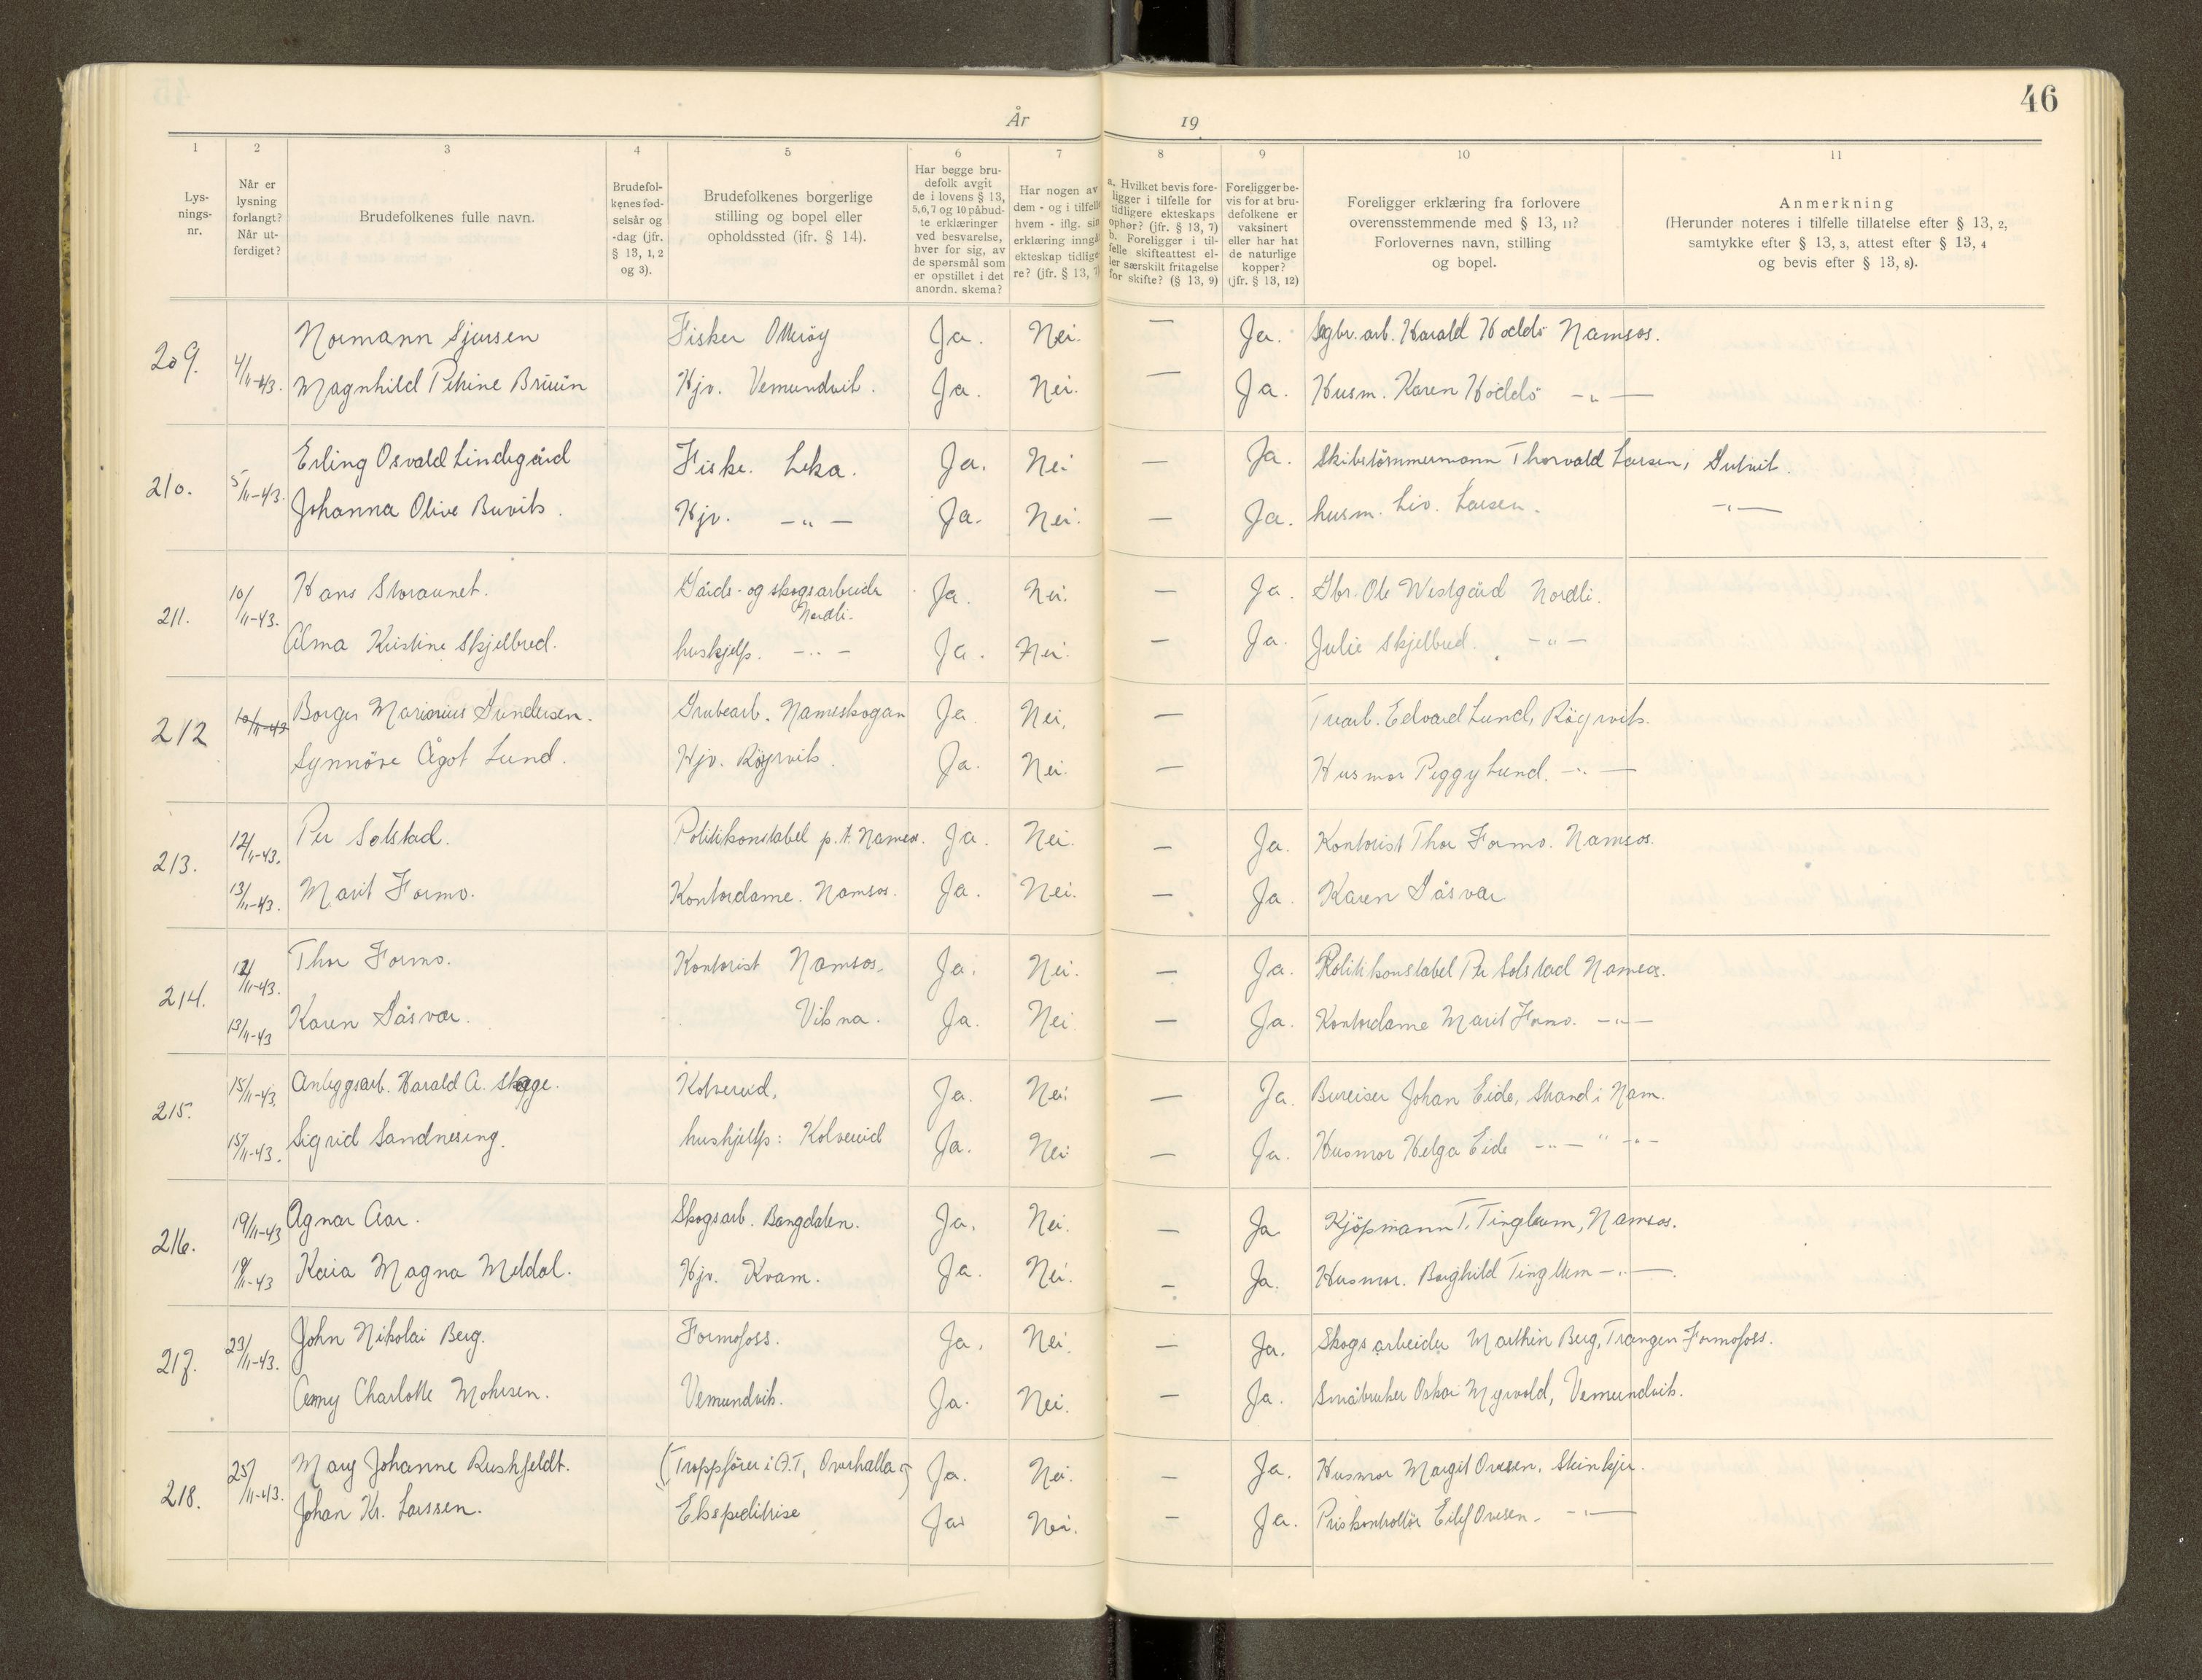 46
År 19
1 2 3 4 5 6 7 8 9 10 11
Lys-
nings-
nr.
Når er
lysning
forlangt?
Når ut-
ferdiget?
Brudefolkenes fulle navn.
Brudefol-
kenes fød-
selsår og
-dag (jfr.
§ 13, 1, 2
og 3).
Brudefolkenes borgerlige
stilling og bopel eller
opholdssted (ifr. § 14).
Har begge bru-
defolk avgit
de i lovens § 13,
5,6,7 og 10 påbud-
te erklæringer
ved besvarelse,
hver for sig, av
de spørsmål som
er opstillet i det
anordn. skema?
Har nogen av
dem - og i tilfelle
hvem - iflg. sin
erklæring inngå
ekteskap tidlige
re? (jfr. § 13, 7)
a. Hvilket bevis fore-
ligger i tilfelle for
tidligere ekteskaps
ophør? (jfr. § 13, 7)
b. Foreligger i til-
felle skifteattest el-
ler særskilt fritagelse
for skifte? (§ 13, 9)
Foreligger be-
vis for at bru-
defolkene er
vaksinert
eller har hat
de naturlige
kopper?
(jfr. § 13, 12)
Foreligger erklæring fra forlovere
overensstemmende med § 13, 11?
Forlovernes navn, stilling
og bopel.
Anmerkning
(Herunder noteres i tilfelle tillatelse efter § 13, 2,
samtykke efter § 13, 3, attest efter § 13, 4
og bevis efter § 13, 8).
209. 4/11-43. Normann Sjursen Fisker Otterøy Ja. Nei. — Ja. Sagbr. arb. Harald Høddö Namsos.
Magnhild Petrine Bruun Hjv. Vemundvik. Ja. Nei. — Ja. Husm. Karen Høddö -„-
210. 5/11-43. Erling Osvald Lindegård Fiske. Leka. Ja. Nei — Ja. Skibstömmermann Thorvald Larsen,
Johanna Olive Buvik. Hjv. -„- Ja. Nei. — Ja. husm. Liv. Larsen. -„-
211. 10/11-43. Hans Storaunet. Gårds- og skogsarbeide
Nordli. Ja. Nei. — Ja. Gbr. Ole Westgård Nordli.
Alma Kristine Skjelbred. huskjelp. -„- Ja. Nei. — Ja. Julie Skjelbred. -„-
212 10/11-43 Borger Marinius Gundersen. Grubearb. Namsskogan Ja. Nei. — Edvard Lund, Röyrvik.
Synnöve Ågot Lund. Hjv. Röyrvik. Ja. Nei. — Husmor Peggy Lund. -„-
213. 12/11-43. Per Solstad. Politikonstabel p.t. Namsos. Ja. Nei. — Ja. Kontorist Thor Formo. Namsos.
13/11-43. Marit Formo. Kontordame. Namsos. Ja. Nei. — Ja. Karen Gåsvær
214. 12/11-43. Thor Formo. Kontorist Namsos. Ja. Nei. — Ja. Politikonstabel Per Solstad Namsos.
13/11-43 Karen Gåsvær. Vikna. Ja. Nei — Ja. Kontordame Marit Formo. -„-
215. 15/11-43. Anleggsarb. Harald A. Skage. Kolvereid. Ja. Nei. — Ja. Bureiser Johan Eide, Strand i Nam.
15/11-43. Sigrid Sandnesing. hushjelp: Kolvereid Ja. Nei — Ja. Husmor Helga Eide -„- „ -„-
216. 19/11-43 Agnar Aar. Skogsarb. Bangdalen. Ja. Nei. — Ja. Kjöpmann T. Tinglum, Namsos.
19/11-43 Kaia Magna Meldal. Hjv. Kvam. Ja. Nei. — Ja. Husmor. Borghild Tinglum -„-
217. 23/11-43. John Nikolai Berg. Formofoss. Ja. Nei. — Ja. Skogsarbeider Marthin Berg, Trangen Formofoss.
Charlotte Mohrsen. Vemundvik. Ja. Nei. — Ja. Småbruker Oskar Myrvold, Vemundvik.
218. 25/11-43. Mary Johanne Ruskfeldt. (Troppförer i A.T, Overhalla Ja. Nei. — Ja. Husmor Margit Ovesen, Steinkjer.
Johan Kr. Larssen. Ekspeditrise Ja. Nei. — Ja. Priskontrollör Eilif Ovesen. -„-